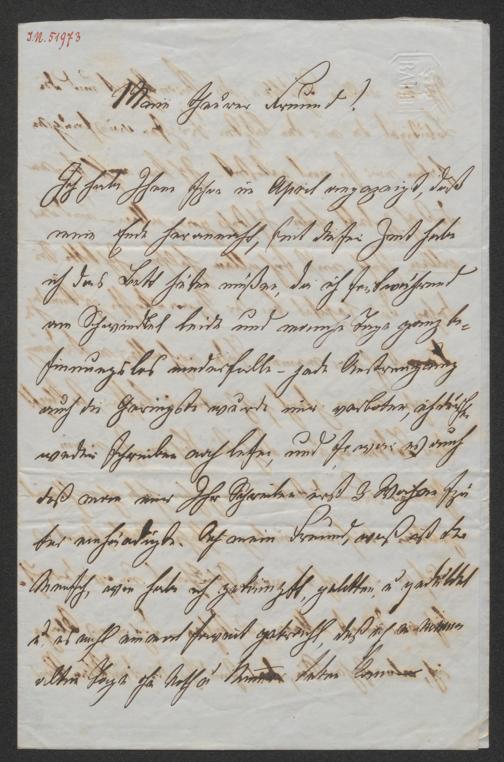 I.N. 51973
BATH
Mein theurer Freund!
Ich habe Ihnen schon im April angezeigt, daß
mein Ende herannaht, seit dieser Zeit habe
ich das Bett hüten müßen, da ich fortwährend
am Schwindel leide und manche Tage ganz be-
sinnungslos niederfalle – jede Anstrengung
auch die Geringste wurde mir verboten, ich dürfte
weder schreiben noch lesen, und so war es auch
daß man mir Ihr Schreiben erst 3 Wochen spä
ter einhändigte. Ach mein Freund, was ist der
Mensch, wie habe ich gekämpft, gelitten, u geduldet
u. es auch einmal soweit gebracht, daß ich in meinen
alten Tage ohne Noth u leben